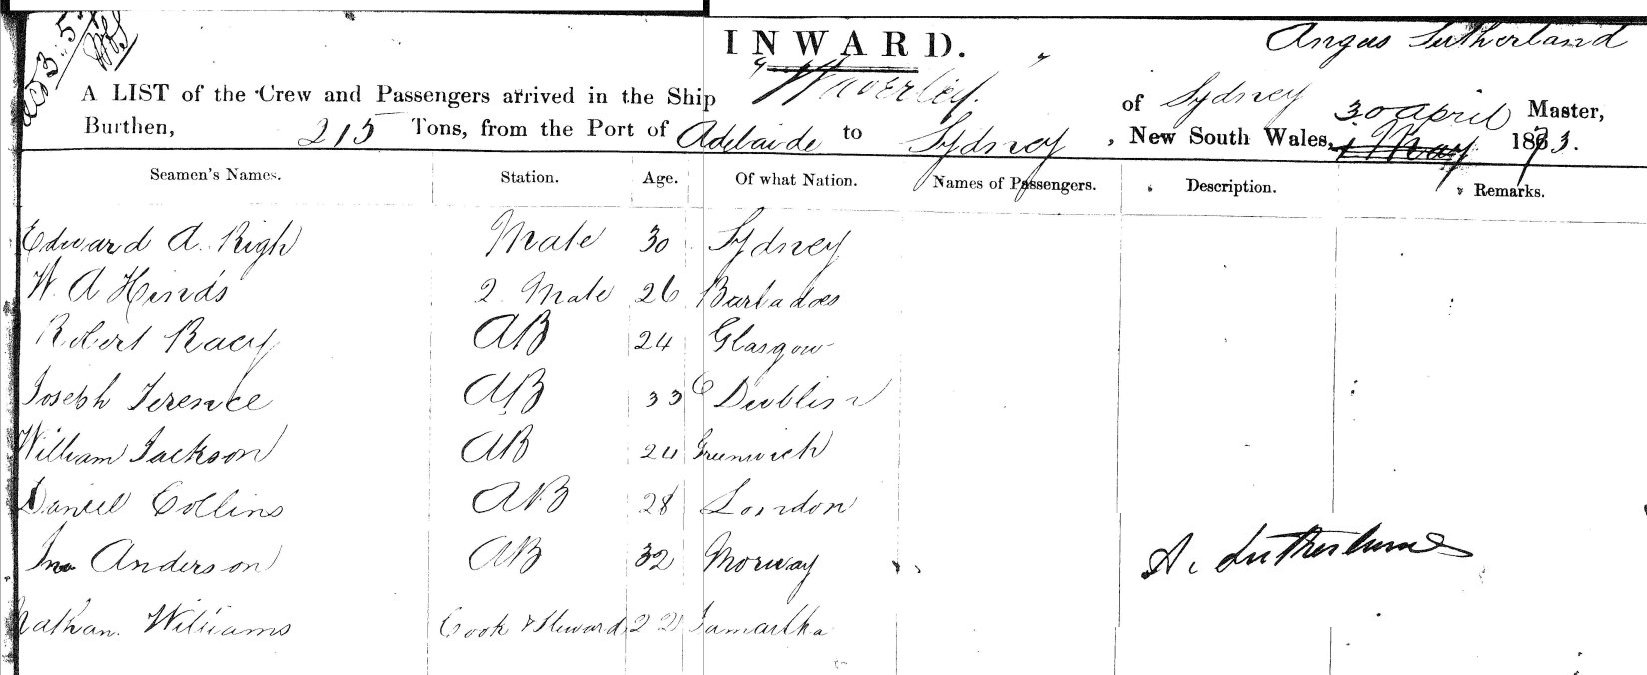 INWARD.
Angus Sutherland
A LIST of the Crew and Passengers arrived in the Ship Waverley. of Sydney Master,
Burthen, 215 Tons, from the Port of Adelaide to Sydney, New South Wales, 30 April 1 May 1873.
Seamen's Names. Station. Age. Of what Nation. Names of Passengers. Description. Remarks.
Edward A. Righ Mate 30 Sydney
W. A Hinds 2. Mate 26 Barbadoes
Robert Racy AB 24 Glasgow
Joseph Terence AB 33 Dublin
William Jackson AB 24 Greenwich
Daniel Collins AB 28 London
Jno Anderson AB 32 Norway
A. Sutherland
Nathan. Williams Cook & Steward 22 Jamaika